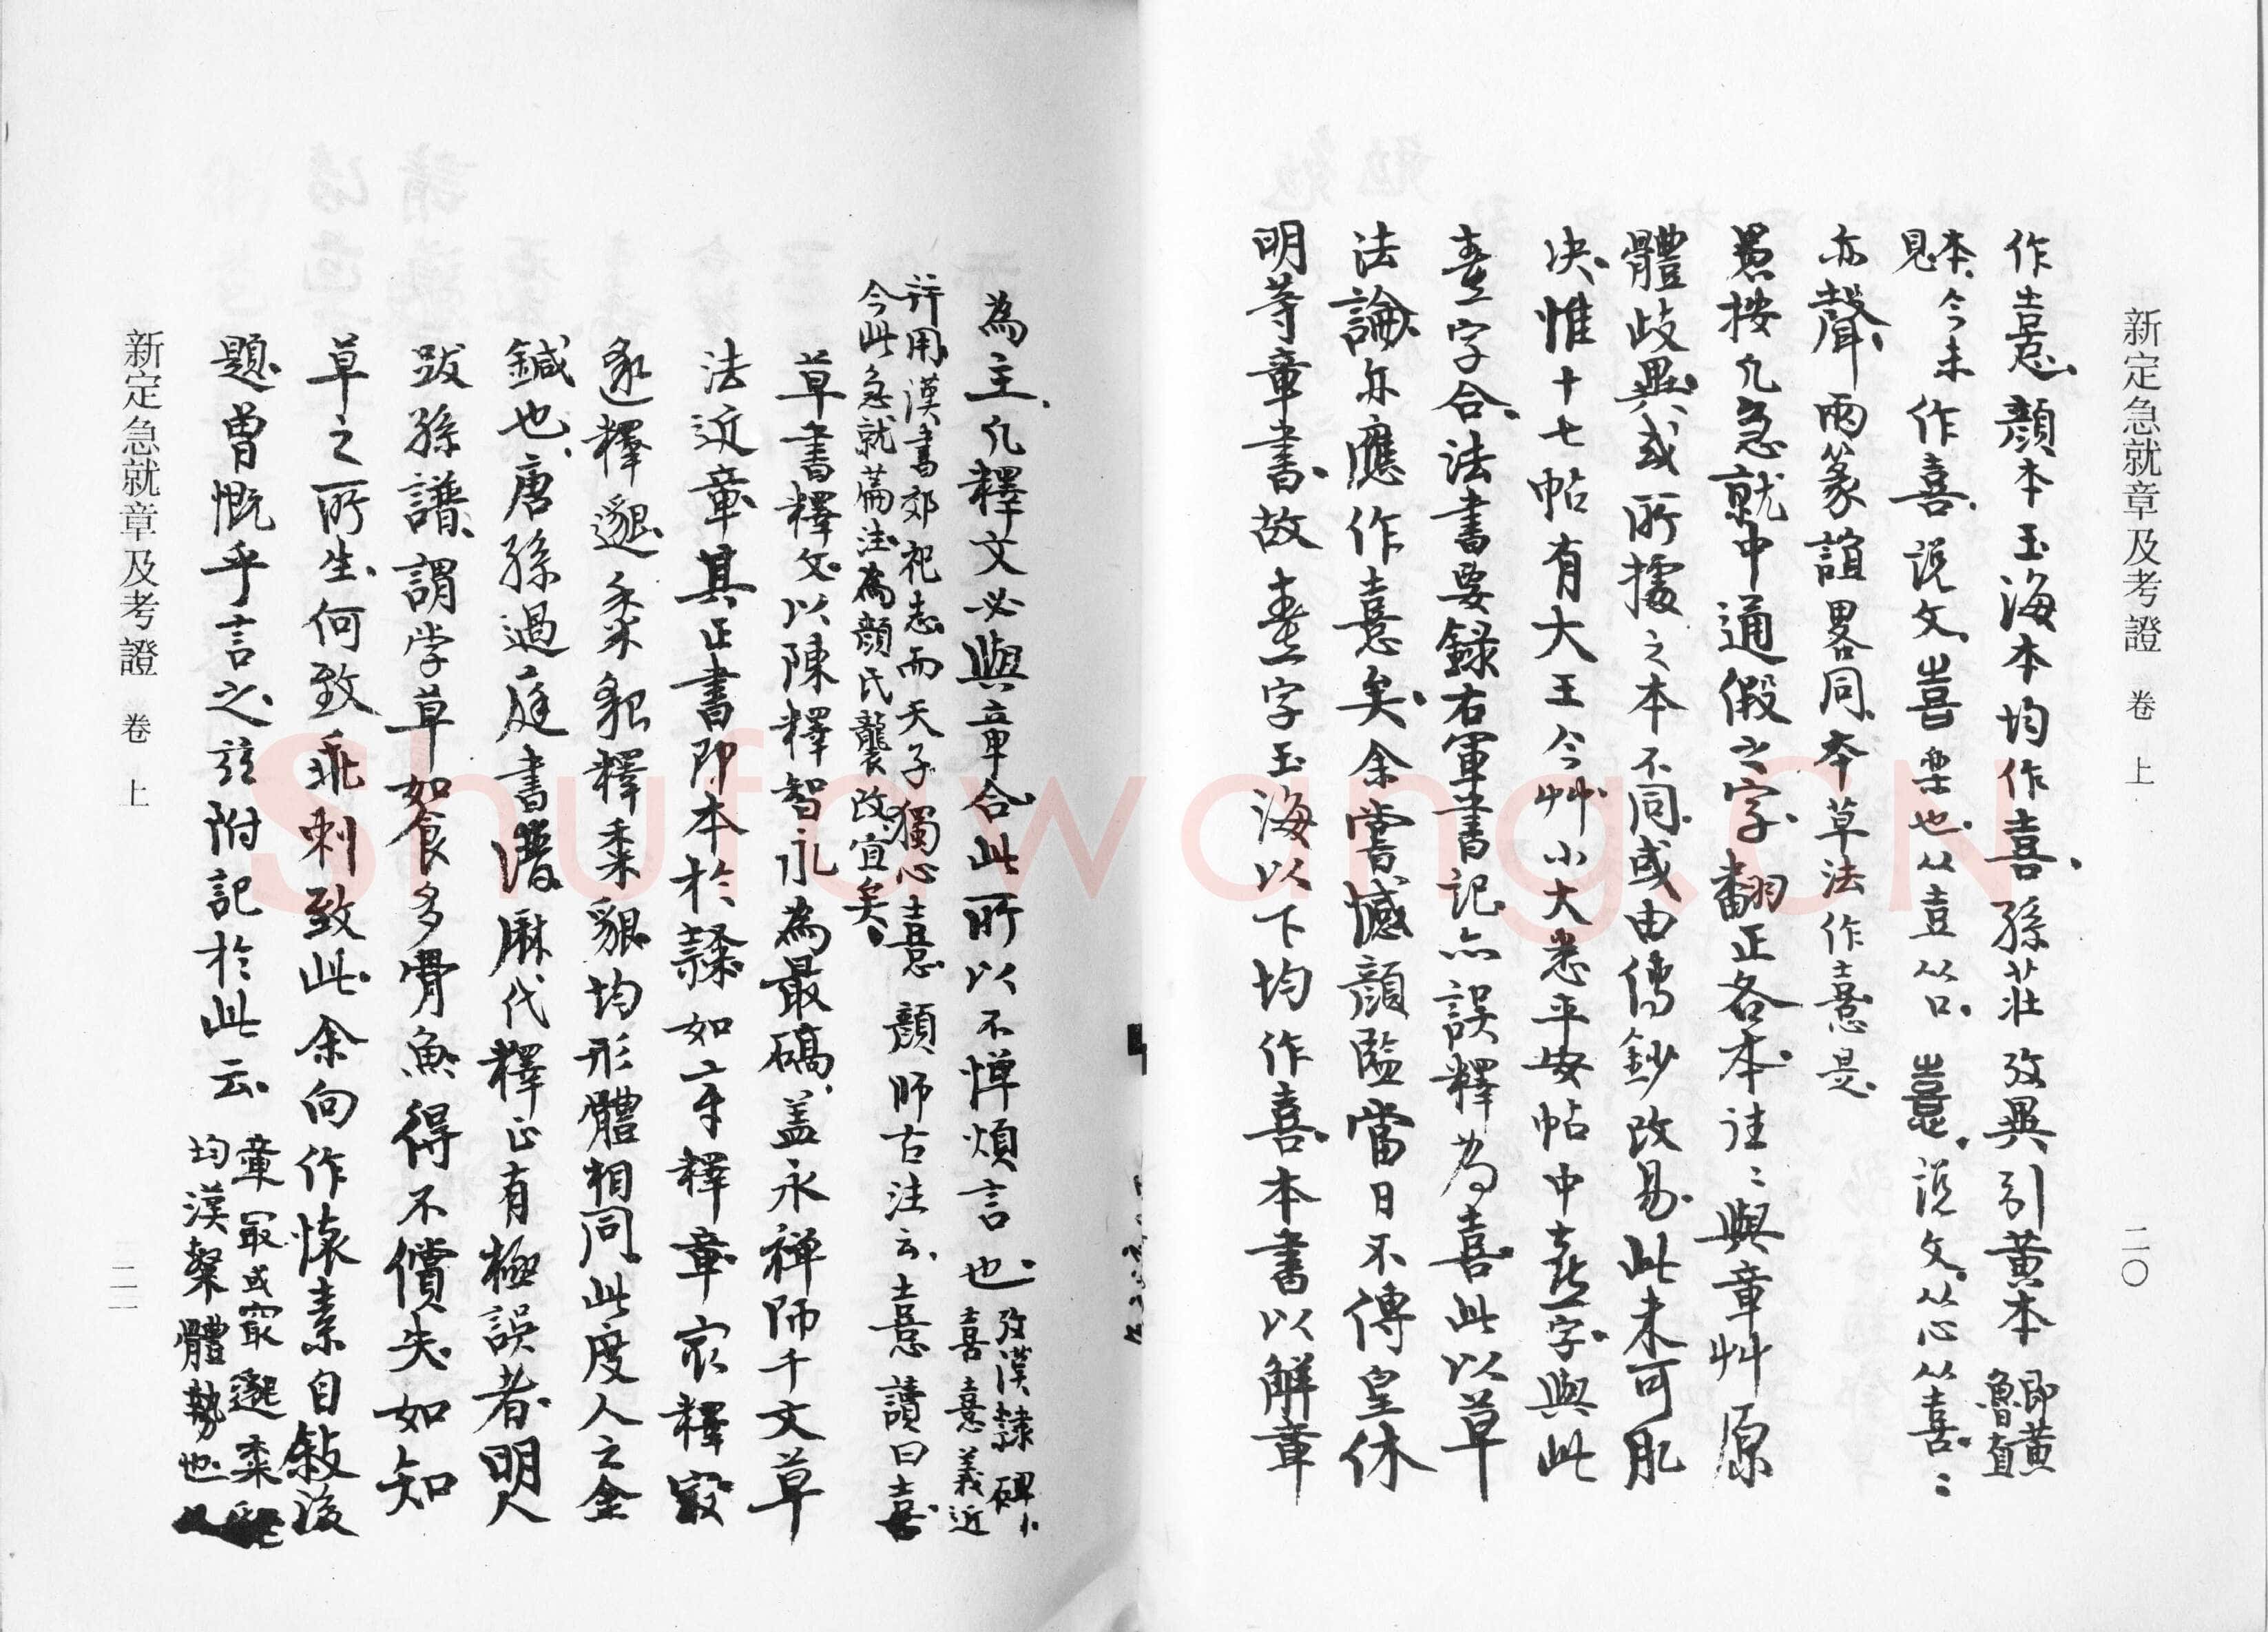 新定急就章及考證 卷上 二〇
作憙顏本玉海本均作喜孫莊攷異引黃本即黃魯直
本今未見作喜說文喜樂也从壴从口憙說文从心从喜喜
亦聲兩篆誼畧同本草法作憙是
愚按凡急就中通假之字翻正各本註註與章艸原
體歧異或所據之本不同或由傳鈔改易此未可肊
決惟十七帖有大王今艸小大悉平安帖中憙字與此
憙字合法書要錄右軍書記亦誤釋為喜此以草
法論亦應作憙矣余嘗憾顏監當日不傳皇休
明等章書故憙字玉海以下均作喜本書以解章
為主凡釋文必與章合此所以不憚煩言也攷漢隸碑喜憙義近
行用漢書郊祀志而天子獨心憙顏師古注云憙讀曰喜
今此急就篇注為顏氏襲改宜矣
草書釋文以陳釋智永為最礭蓋永禪師千文草
法近章其正書即本於隸如㝡釋章㝡釋㝡
邈釋邈釋貌均形體相同此度人之金
鍼也唐孫過庭書譜厤代釋正有極誤者明人
跋孫譜謂学草如食多骨魚得不償失如知
草之所生何致乖剌致此余向作懷素自敍後
題曾慨乎言之茲附記於此云章最或㝡邈
均漢槃體勢也
新定急就章及考證 卷上 二一
Shufawang.CN